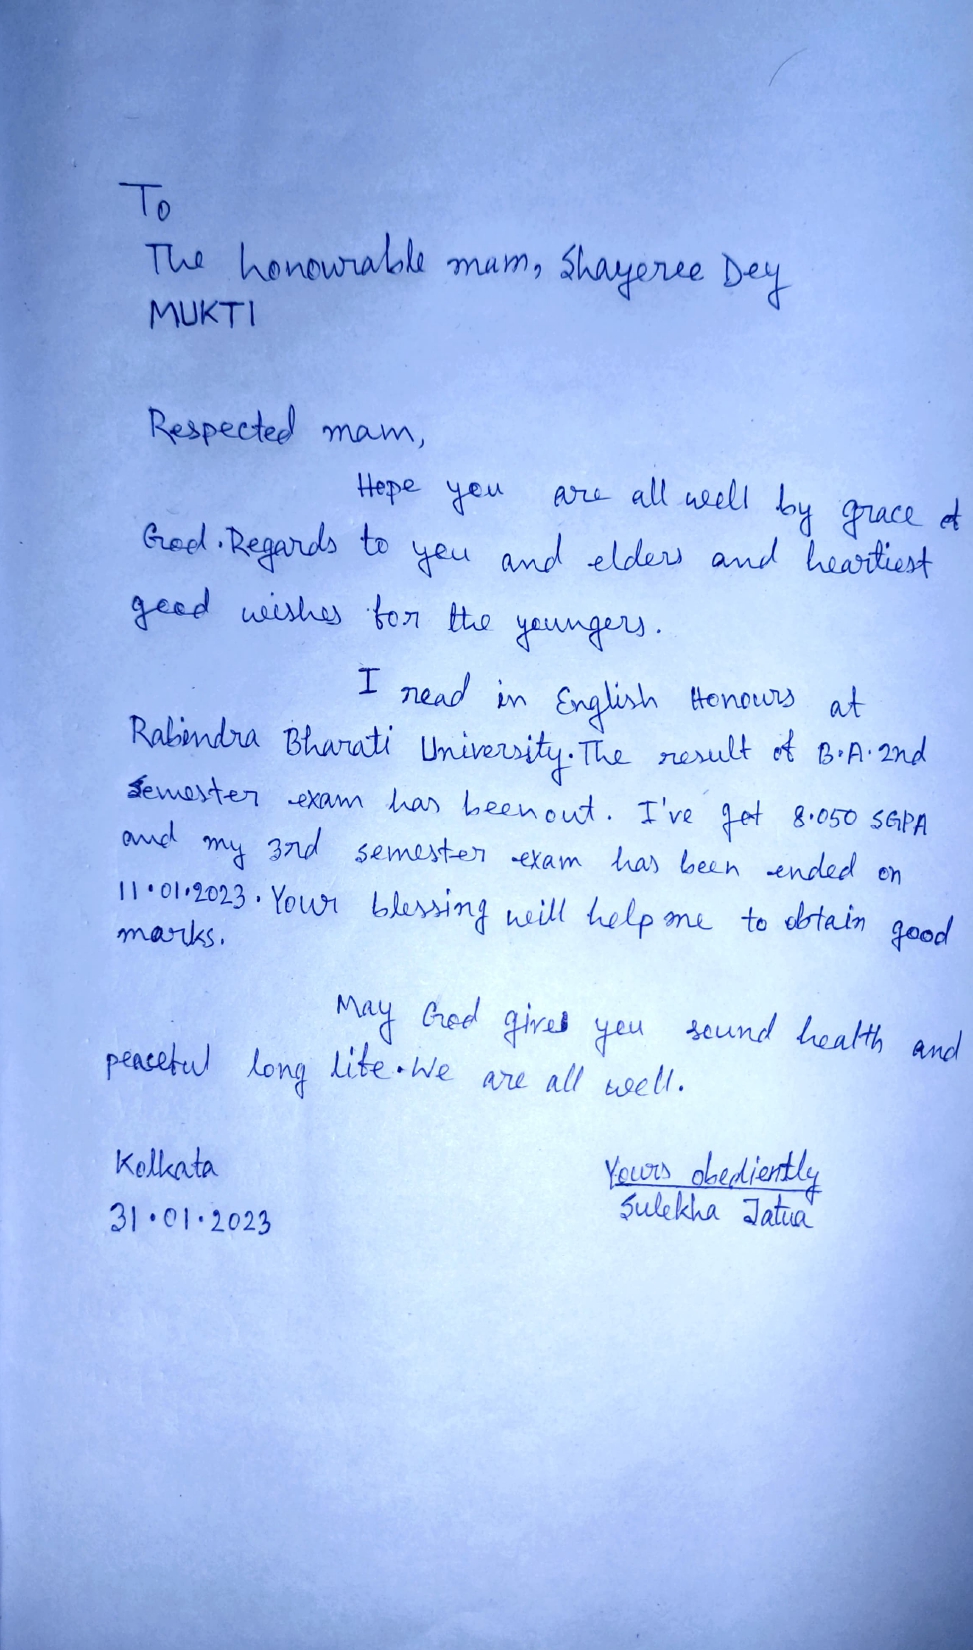 To
The honourable mam, Shayeree Dey
MUKTI
Respected mam,
Hope you are all well by grace of
God. Regards to you and elders and heartiest
good wishes for the youngers.
I read in English Honours at
Rabindra Bharati University. The result of B.A. 2nd
semester exam has been out. I've got 8.050 SGPA
and my 3rd semester exam has been ended on
11.01.2023. Your blessing will help me to obtain good
marks.
May God gives you sound health and
peaceful long life. We are all well.
Kolkata
31.01.2023
Yours obediently
Sulekha Jatua